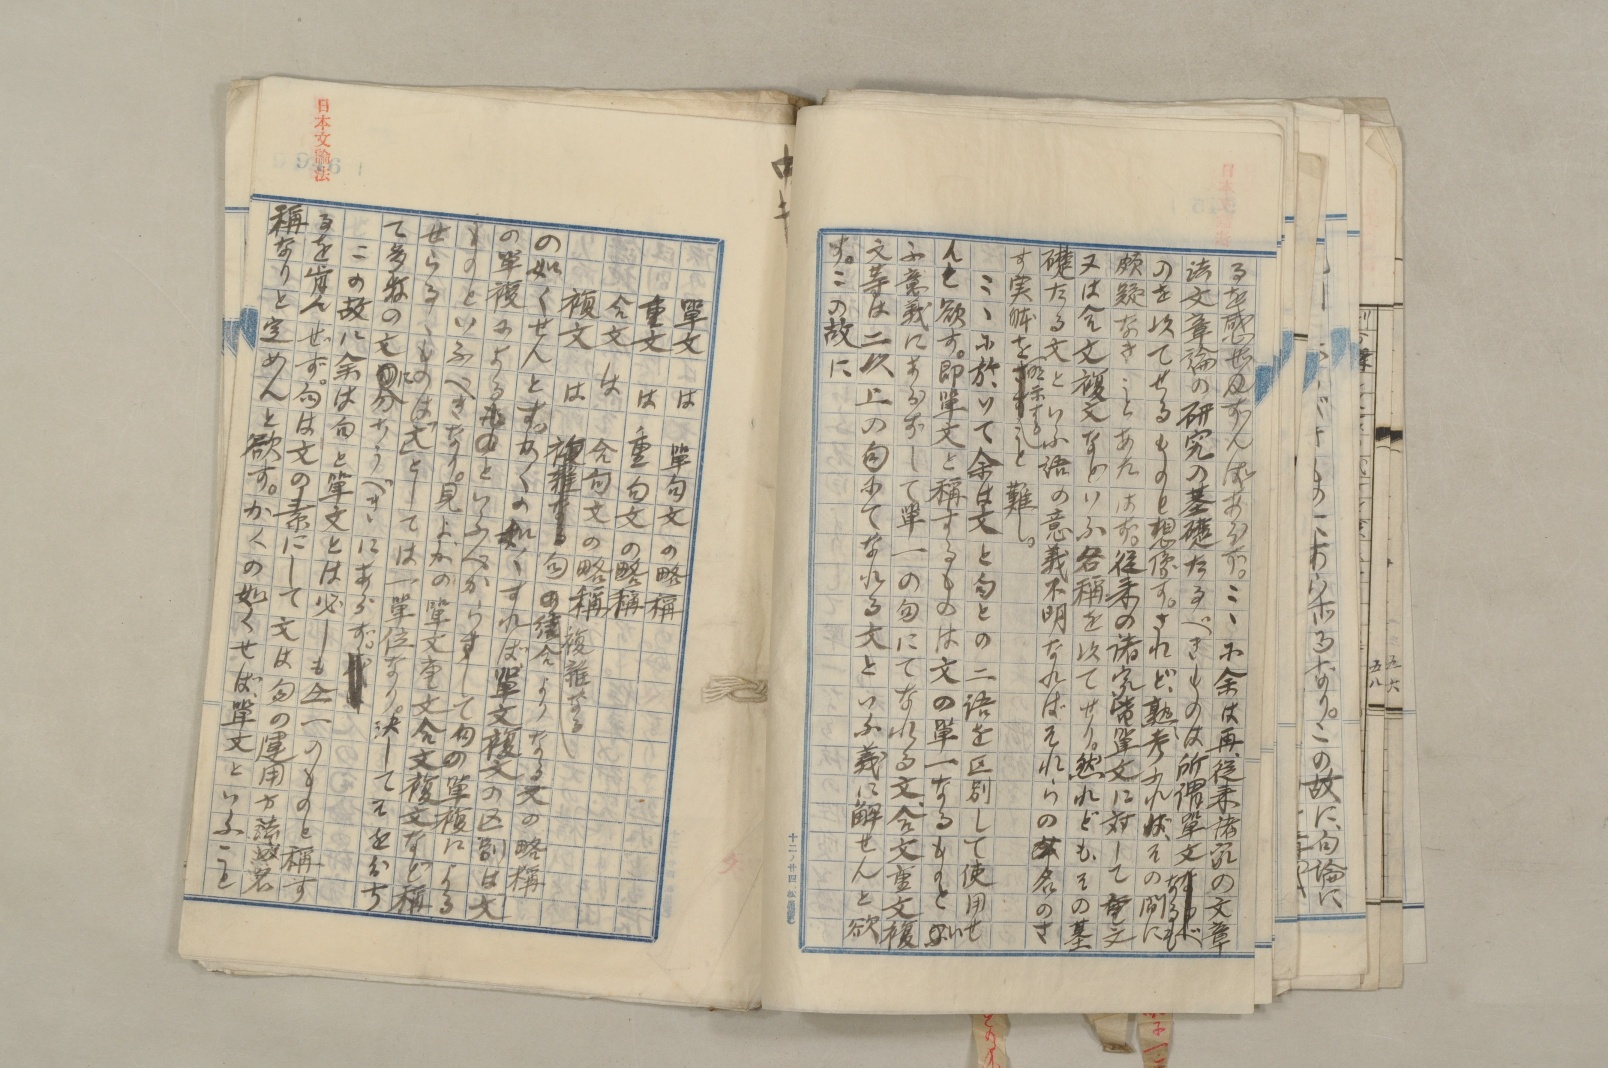 るを感せずんばあらず。こゝに余は再、従来諸家の文章
法文章論の研究の基礎たるべきものは所謂単文なるも
のを以てせるものと想像す。されど、熟考すれば、その間に
頗疑なきことあたはず。従来の諸家皆単文に対して重文
又は合文複文などいふ名称を以てせり。然れども、その基
礎たる文といふ語の意義不明なればそれらの名のさ
す実体を明示すること難し。
こゝに於いて余は文と句との二語を区別して使用せ
んと欲す。即単文と称するものは文の単一なるものとい
ふ意義にあらずして単一の句にてなれる文、合文重文複
文等は二以上の句にてなれる文といふ義に解せんと欲
す。この故に
日本文論法
単文は 単句文の略称
重文は 重句文の略称
合文は 合句文の略称
複文は 複雑なる句の結合よりなる文の略称
の如くせんとす。かくの如くすれば、単文複文の区別は文
の単複によるものといふべからずして句の単複による
ものといふべきなり。見よ、かの単文重文合文複文など称
せらるゝものは文としては一単位なり。決してそを分ち
て多数の文に分つべきにあらず。
この故に余は句と単文とは必しも全一のものと称す
るを肯んぜず。句は文の素にして文は句の運用方法
称なりと定めんと欲す。かくの如くせば、単文といふこと
この故に、句論に
五六
五八
十二ノ廿四